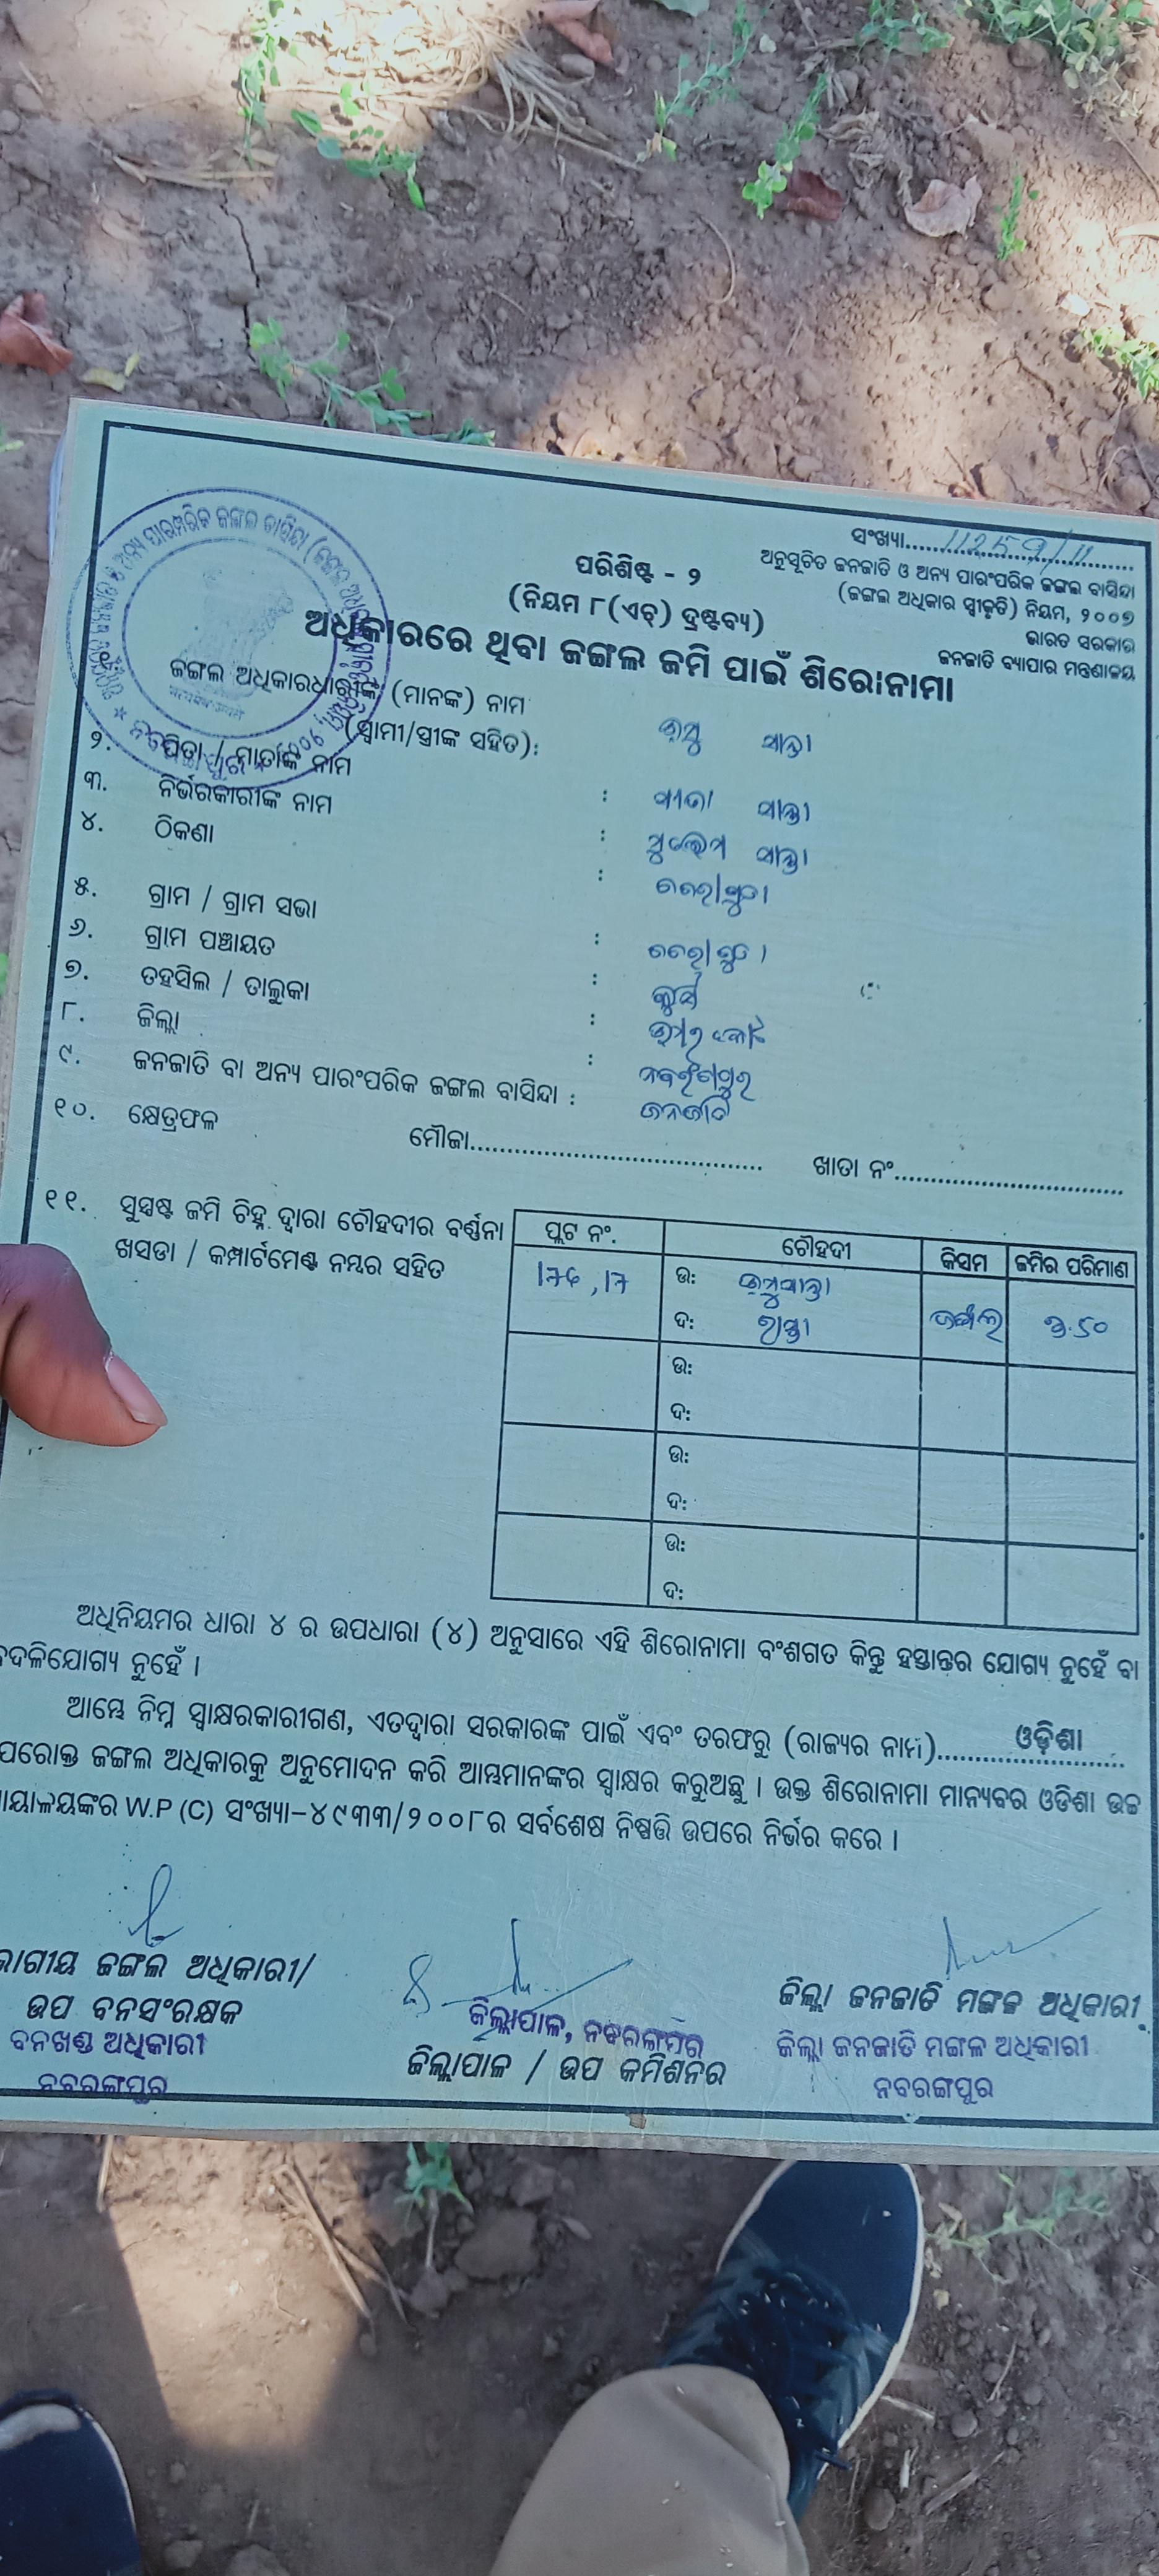 ସଂଖ୍ୟା............11259/11............
ଅନୁସୂଚିତ ଜନଜାତି ଓ ଅନ୍ୟ ପାରଂପରିକ ଜଙ୍ଗଲ ବାସିନ୍ଦା
(ଜଙ୍ଗଲ ଅଧିକାର ସ୍ୱୀକୃତି) ନିୟମ, ୨୦୦୭
ଭାରତ ସରକାର
ଜନଜାତି ବ୍ୟାପାର ମନ୍ତ୍ରଣାଳୟ
ପରିଶିଷ୍ଟ - ୨
(ନିୟମ ୮(ଏଚ୍) ଦ୍ରଷ୍ଟବ୍ୟ)
ଅଧିକାରରେ ଥିବା ଜଙ୍ଗଲ ଜମି ପାଇଁ ଶିରୋନାମା
୧. ଜଙ୍ଗଲ ଅଧିକାରଧାରୀଙ୍କ (ମାନଙ୍କ) ନାମ
(ସ୍ୱାମୀ/ସ୍ତ୍ରୀଙ୍କ ସହିତ):
୨. ପିତା / ମାତାଙ୍କ ନାମ :
୩. ନିର୍ଭରକାରୀଙ୍କ ନାମ :
୪. ଠିକଣା :
୫. ଗ୍ରାମ / ଗ୍ରାମ ସଭା :
୬. ଗ୍ରାମ ପଞ୍ଚାୟତ :
୭. ତହସିଲ / ତାଲୁକା : ଉମରକୋଟ
୮. ଜିଲ୍ଲା : ନବରଂଗପୁର
୯. ଜନଜାତି ବା ଅନ୍ୟ ପାରଂପରିକ ଜଙ୍ଗଲ ବାସିନ୍ଦା : ଜନଜାତି
୧୦. କ୍ଷେତ୍ରଫଳ ମୌଜା........................................ ଖାତା ନଂ................................
୧୧. ସୁସ୍ପଷ୍ଟ ଜମି ଚିହ୍ନ ଦ୍ୱାରା ଚୌହଦୀର ବର୍ଣ୍ଣନା
ଖସଡା / କମ୍ପାର୍ଟମେଣ୍ଟ ନମ୍ବର ସହିତ
ପ୍ଲଟ ନଂ. ଚୌହଦୀ କିସମ ଜମିର ପରିମାଣ
ଉ:
ଦ: ଜଙ୍ଗଲ
ଉ:
ଦ:
ଉ:
ଦ:
ଉ:
ଦ:
ଅଧିନିୟମର ଧାରା ୪ ର ଉପଧାରା (୪) ଅନୁସାରେ ଏହି ଶିରୋନାମା ବଂଶଗତ କିନ୍ତୁ ହସ୍ତାନ୍ତର ଯୋଗ୍ୟ ନୁହେଁ ବା
ବଦଳିଯୋଗ୍ୟ ନୁହେଁ ।
ଆମ୍ଭେ ନିମ୍ନ ସ୍ୱାକ୍ଷରକାରୀଗଣ, ଏତଦ୍ୱାରା ସରକାରଙ୍କ ପାଇଁ ଏବଂ ତରଫରୁ (ରାଜ୍ୟର ନାମ)..........ଓଡ଼ିଶା..........
ପରୋକ୍ତ ଜଙ୍ଗଲ ଅଧିକାରକୁ ଅନୁମୋଦନ କରି ଆମ୍ଭମାନଙ୍କର ସ୍ୱାକ୍ଷର କରୁଅଛୁ । ଉକ୍ତ ଶିରୋନାମା ମାନ୍ୟବର ଓଡିଶା ଉଚ୍ଚ
ୟାଳୟଙ୍କର W.P (C) ସଂଖ୍ୟା-୪୯୩୩/୨୦୦୮ର ସର୍ବଶେଷ ନିଷ୍ପତ୍ତି ଉପରେ ନିର୍ଭର କରେ ।
ଭାଗୀୟ ଜଙ୍ଗଲ ଅଧିକାରୀ/
ଉପ ବନସଂରକ୍ଷକ
ବନଖଣ୍ଡ ଅଧିକାରୀ
ନବରଙ୍ଗପୁର
ଜିଲ୍ଲାପାଳ, ନବରଙ୍ଗପୁର
ଜିଲ୍ଲାପାଳ / ଉପ କମିଶନର
ଜିଲ୍ଲା ଜନଜାତି ମଙ୍ଗଳ ଅଧିକାରୀ
ଜିଲ୍ଲା ଜନଜାତି ମଙ୍ଗଳ ଅଧିକାରୀ
ନବରଙ୍ଗପୁର